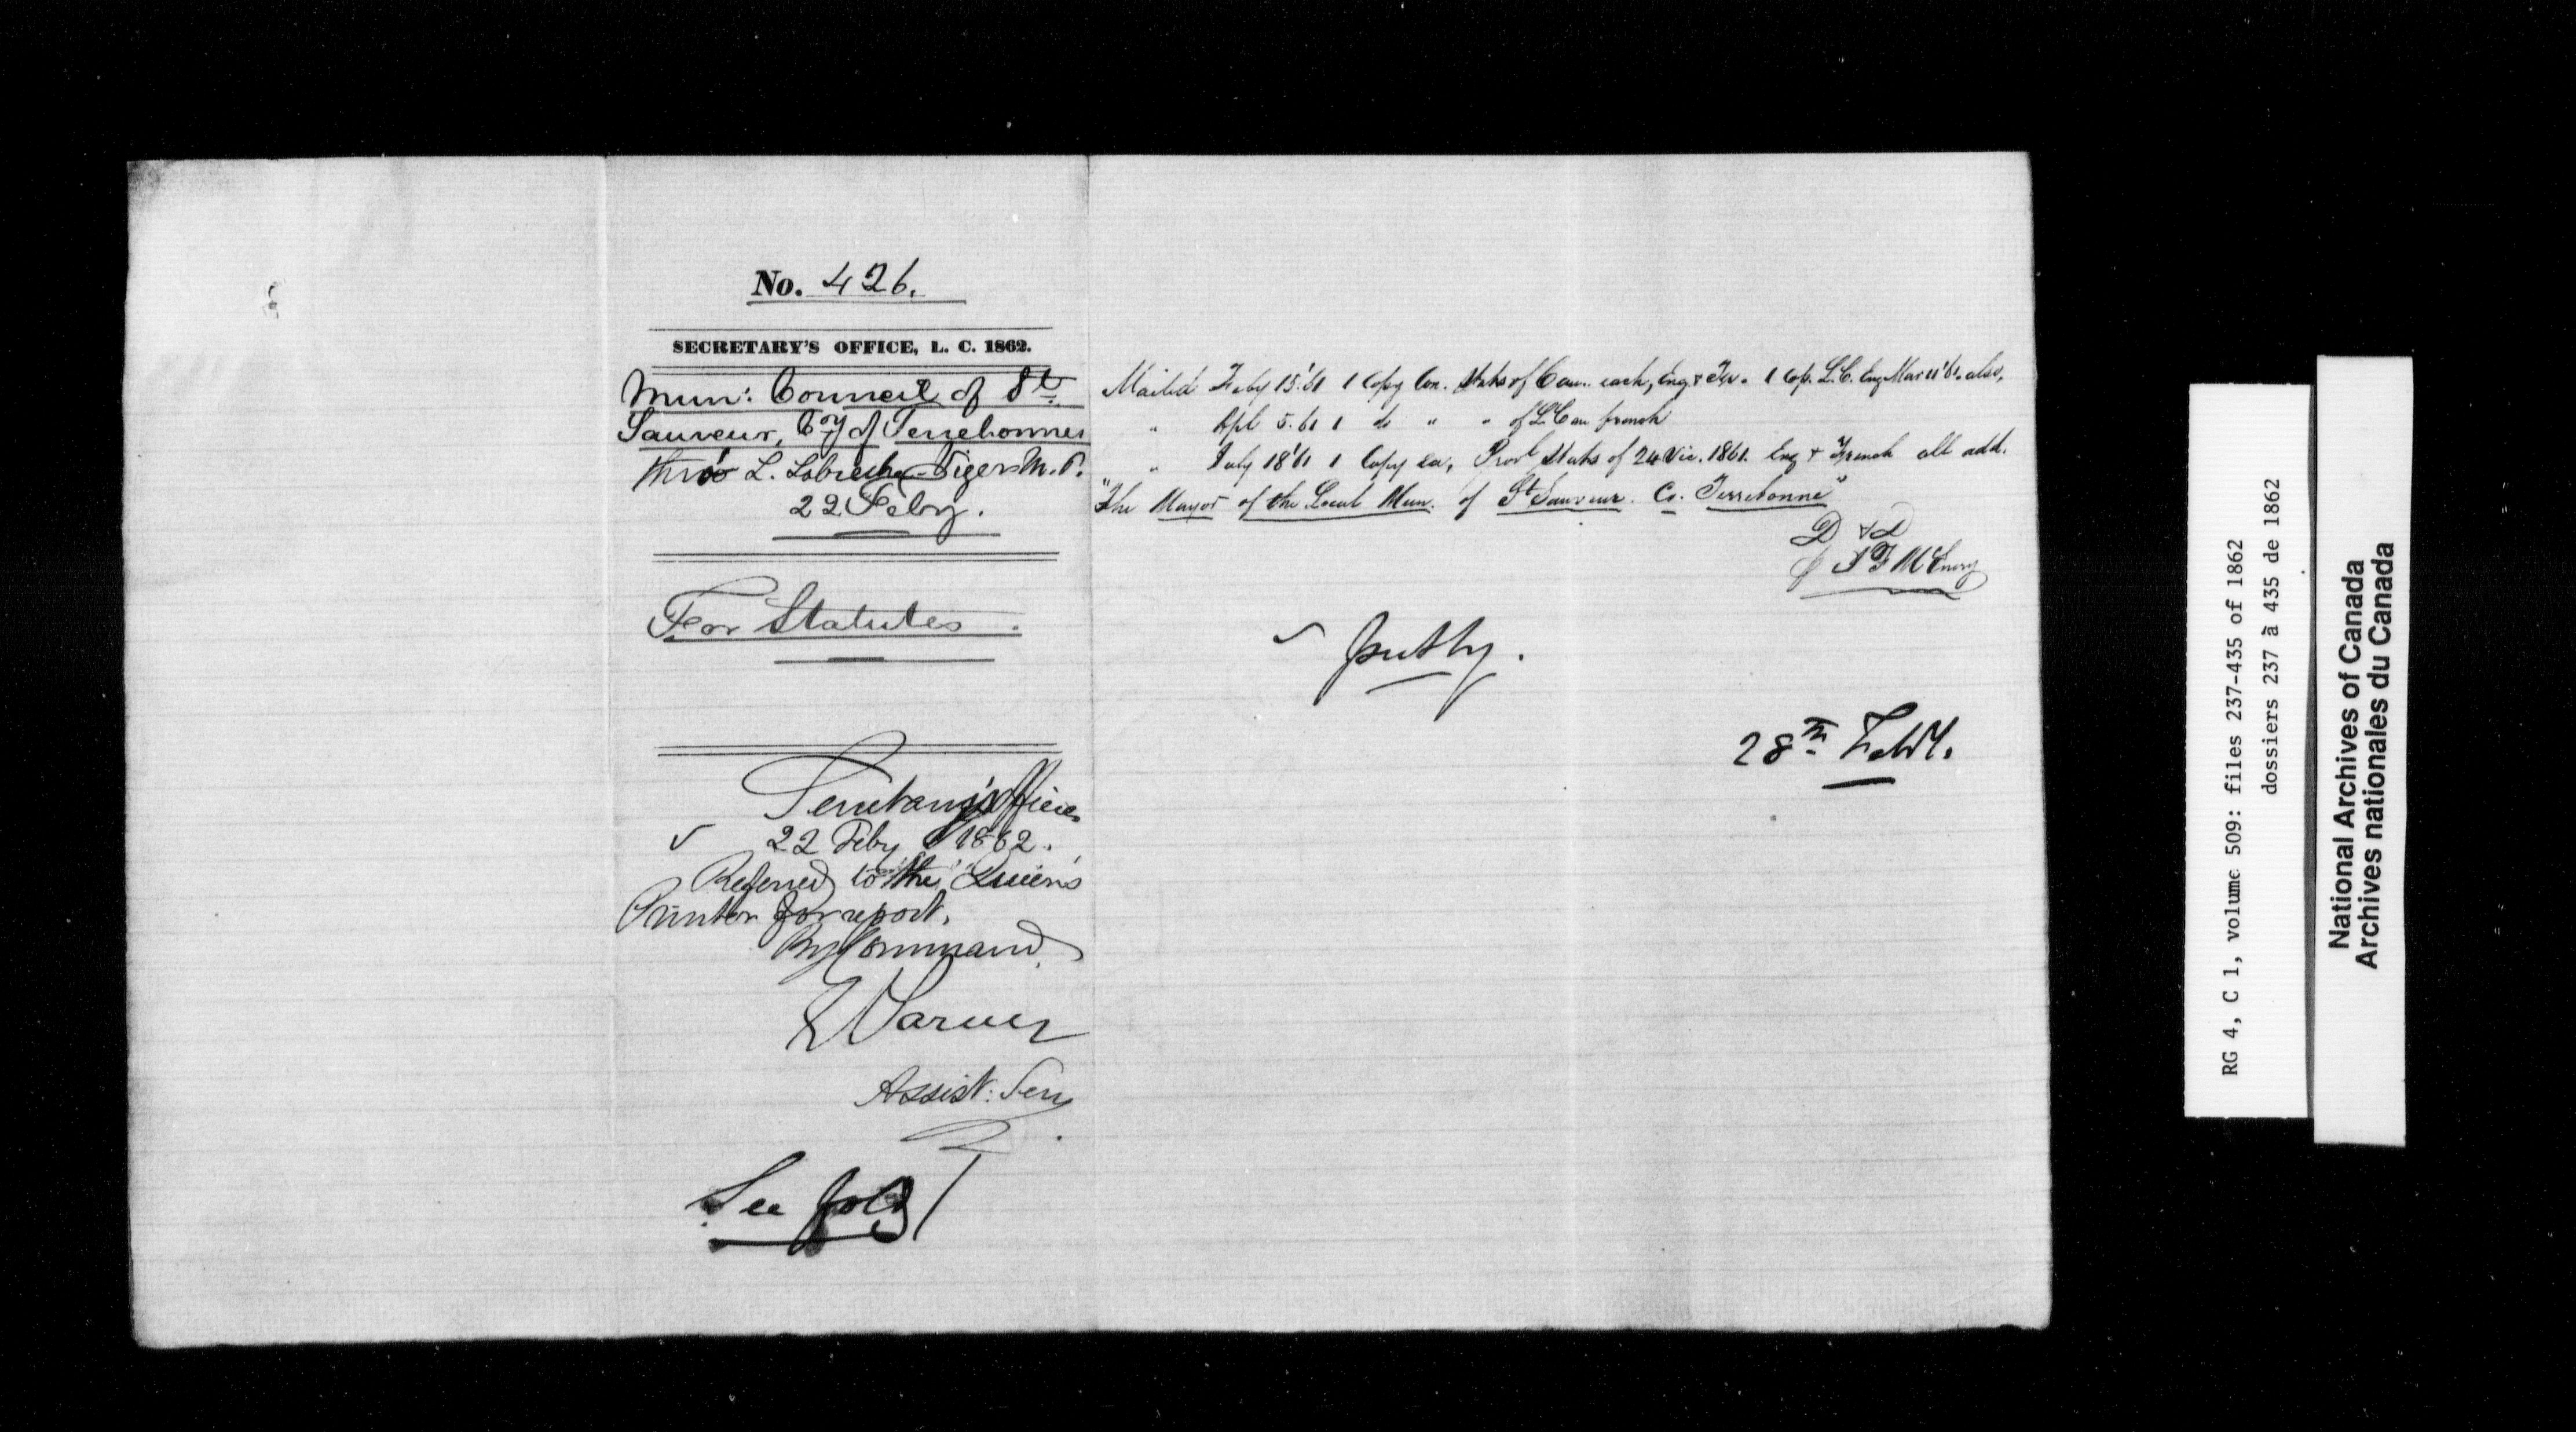 No. 426.
SECRETARY'S OFFICE, L. C. 1862.
Mun: Council of St
Sauveur, Coy of Terrebonne
thro' L. Labreche-Viger M.P.
22 Feby.
For Statutes.
Secretary's Office
22 Feby 1862.
Referred to the Queen's
Printer for report.
By Command,
Assist: Secy
See fold
Mailed Feby 15.'61 1 Copy Con. Stats of Can. each, Eng. & Fr. 1 Cop. L.C. Eng Mar 11'61. also,
" Apl 5.61 1 do " " of L. Can french
" July 18'61 1 Copy ea, Provl Stats of 24 Vic. 1861. Eng & French all add.
"The Mayor of the Local Mun. of St Sauveur. Co. Terrebonne"
D & D
28th Feby.
RG 4, C 1, volume 509: files 237-435 of 1862
dossiers 237 à 435 de 1862
National Archives of Canada
Archives nationales du Canada